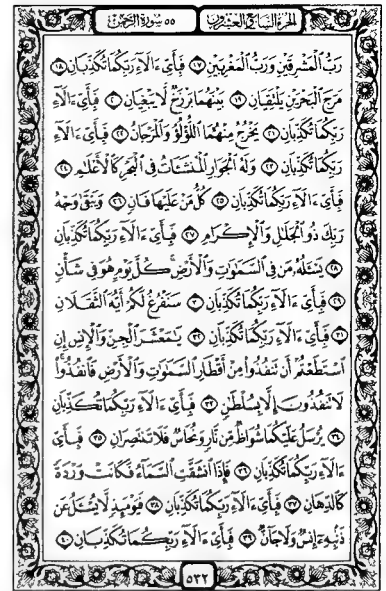 الجزء السابع والعشرون ٥٥ سورة الرحمن
رَبُّ الْمَشْرِقَيْنِ وَرَبُّ الْمَغْرِبَيْنِ ١٧ فَبِأَيِّ ءَالَآءِ رَبِّكُمَا تُكَذِّبَانِ ١٨
مَرَجَ الْبَحْرَيْنِ يَلْتَقِيَانِ ١٩ بَيْنَهُمَا بَرْزَخٌ لَّا يَبْغِيَانِ ٢٠ فَبِأَيِّ ءَالَآءِ
رَبِّكُمَا تُكَذِّبَانِ ٢١ يَخْرُجُ مِنْهُمَا اللُّؤْلُؤُ وَالْمَرْجَانُ ٢٢ فَبِأَيِّ ءَالَآءِ
رَبِّكُمَا تُكَذِّبَانِ ٢٣ وَلَهُ الْجَوَارِ الْمُنشَئَاتُ فِي الْبَحْرِ كَالْأَعْلَٰمِ ٢٤
فَبِأَيِّ ءَالَآءِ رَبِّكُمَا تُكَذِّبَانِ ٢٥ كُلُّ مَنْ عَلَيْهَا فَانٍ ٢٦ وَيَبْقَىٰ وَجْهُ
رَبِّكَ ذُو الْجَلَٰلِ وَالْإِكْرَامِ ٢٧ فَبِأَيِّ ءَالَآءِ رَبِّكُمَا تُكَذِّبَانِ
٢٨ يَسْـَٔلُهُ مَن فِي السَّمَٰوَٰتِ وَالْأَرْضِ ۚ كُلَّ يَوْمٍ هُوَ فِي شَأْنٍ
٢٩ فَبِأَيِّ ءَالَآءِ رَبِّكُمَا تُكَذِّبَانِ ٣٠ سَنَفْرُغُ لَكُمْ أَيُّهَ الثَّقَلَانِ
٣١ فَبِأَيِّ ءَالَآءِ رَبِّكُمَا تُكَذِّبَانِ ٣٢ يَٰمَعْشَرَ الْجِنِّ وَالْإِنسِ إِنِ
اسْتَطَعْتُمْ أَن تَنفُذُوا مِنْ أَقْطَارِ السَّمَٰوَٰتِ وَالْأَرْضِ فَانفُذُوا ۚ
لَا تَنفُذُونَ إِلَّا بِسُلْطَٰنٍ ٣٣ فَبِأَيِّ ءَالَآءِ رَبِّكُمَا تُكَذِّبَانِ
٣٤ يُرْسَلُ عَلَيْكُمَا شُوَاظٌ مِّن نَّارٍ وَنُحَاسٌ فَلَا تَنتَصِرَانِ ٣٥ فَبِأَيِّ
ءَالَآءِ رَبِّكُمَا تُكَذِّبَانِ ٣٦ فَإِذَا انشَقَّتِ السَّمَآءُ فَكَانَتْ وَرْدَةً
كَالدِّهَانِ ٣٧ فَبِأَيِّ ءَالَآءِ رَبِّكُمَا تُكَذِّبَانِ ٣٨ فَيَوْمَئِذٍ لَّا يُسْـَٔلُ عَن
ذَنۢبِهِ إِنسٌ وَلَا جَآنٌّ ٣٩ فَبِأَيِّ ءَالَآءِ رَبِّكُمَا تُكَذِّبَانِ ٤٠
٥٣٢